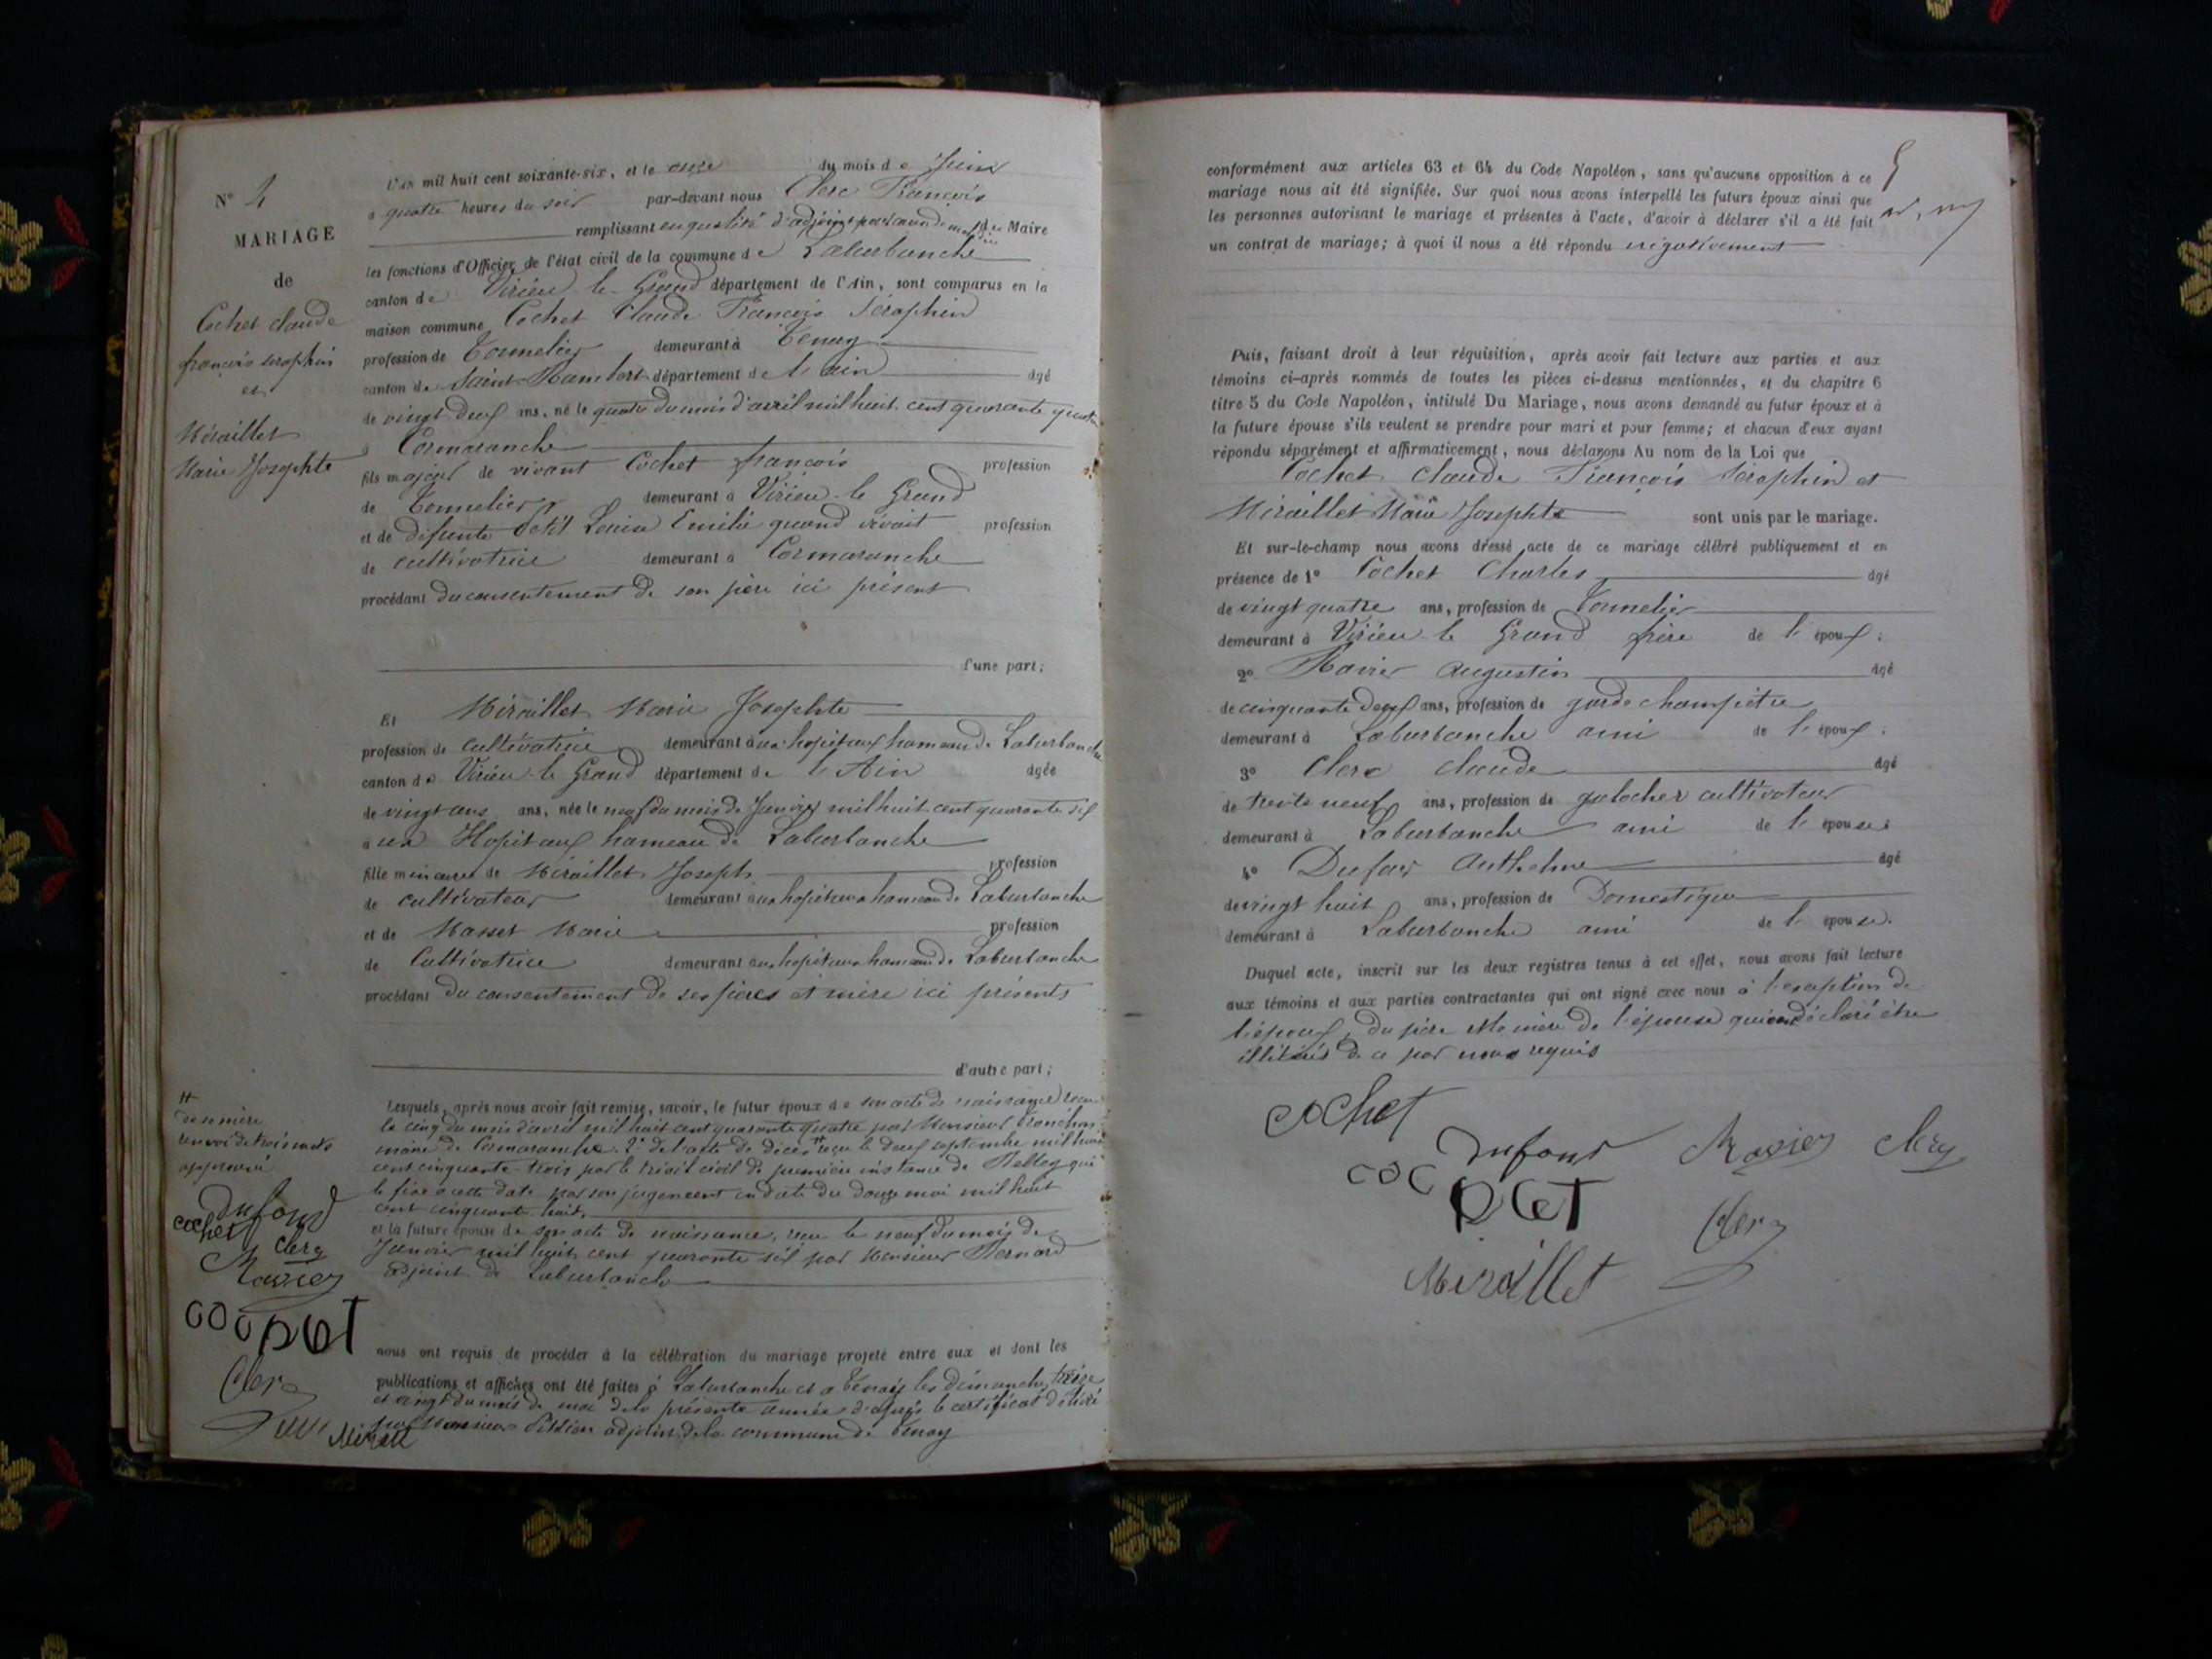 N° 4
MARIAGE
de
Cochet claude
françois seraphin
et
Miraillet
Marie Josephte
L'an mil huit cent soixante-six, et le onze du mois de Juin
a quatre heures du soir par-devant nous Clerc François
remplissant en qualité d'adjoint Maire
les fonctions d'Officier de l'état civil de la commune de Laburbanche
canton de Virieu le Grand département de l'Ain, sont comparus en la
maison commune Cochet Claude François Séraphin
profession de Tonnelier demeurant à Tenay
canton de Saint Rambert département de l'ain âgé
de vingt deux ans, né le quatre du mois d'avril mil huit cent quarante quatre
à Cormaranche
fils majeur de vivant Cochet françois profession
de Tonnelier demeurant à Virieu le Grand
et de défunte Petit Louise Emilie quand vivait profession
de cultivatrice demeurant à Cormaranche
procédant du consentement de son père ici présent
d'une part;
Et Miraillet Marie Josephte
profession de cultivatrice demeurant aux hopitaux hameau de Laburbanche
canton de Virieu le Grand département de l'Ain âgée
de vingt ans ans, née le neuf du mois de Janvier mil huit cent quarante six
aux Hopitaux hameau de Laburbanche
fille mineure de Miraillet Joseph profession
de cultivateur demeurant aux hopitaux hameau de Laburbanche
et de Masset Marie profession
de Cultivatrice demeurant aux hopitaux hameau de Laburbanche
procédant du consentement de ses pères et mère ici présents
d'autre part;
Lesquels, après nous avoir fait remise, savoir, le futur époux de son acte de naissance recu
le cinq du mois d'avril mil huit cent quarante quatre par Monsieur
maire de Cormaranche 2° de l'acte de décès # reçu le deux septembre mil huit
cent cinquante trois par le civil de première instance de Belley qui
le fixe a cette date par son jugement en date du douze mai mil huit
cent cinquante huit,
et la future épouse de son acte de naissance, reçu le neuf du mois de
Janvier mil huit cent quarante six par Monsieur Bernard
adjoint de Laburbanche
#
de sa mère
renvoi de trois mots
approuvé
Dufour
cochet
Clerc
Ravier
COCHET
Clerc
nous ont requis de procéder à la célébration du mariage projeté entre eux et dont les
publications et affiches ont été faites à Laburbanche et a Tenay les dimanches treize
et vingt du mois de mai de la présente année d'après le certificat délivré
par Monsieur adjoint de la commune de Tenay
conformément aux articles 63 et 64 du Code Napoléon, sans qu'aucune opposition à ce
mariage nous ait été signifiée. Sur quoi nous avons interpellé les futurs époux ainsi que
les personnes autorisant le mariage et présentes à l'acte, d'avoir à déclarer s'il a été fait
un contrat de mariage; à quoi il nous a été répondu négativement
Puis, faisant droit à leur réquisition, après avoir fait lecture aux parties et aux
témoins ci-après nommés de toutes les pièces ci-dessus mentionnées, et du chapitre 6
titre 5 du Code Napoléon, intitulé Du Mariage, nous avons demandé au futur époux et à
la future épouse s'ils veulent se prendre pour mari et pour femme; et chacun d'eux ayant
répondu séparément et affirmativement, nous déclarons Au nom de la Loi que
Cochet Claude François Séraphin et
Miraillet Marie Josephte sont unis par le mariage.
Et sur-le-champ nous avons dressé acte de ce mariage célébré publiquement et en
présence de 1° Cochet Charles âgé
de vingt quatre ans, profession de Tonnelier
demeurant à Virieu le Grand frère de l'époux;
2° Ravier Augustin âgé
de cinquante deux ans, profession de garde champêtre
demeurant à Laburbanche ami de l'époux;
3° Clerc Claude âgé
de trente neuf ans, profession de galocher cultivateur
demeurant à Laburbanche ami de l'épouse;
4° Dufour Anthelme âgé
de vingt huit ans, profession de Domestique
demeurant à Laburbanche ami de l'épouse.
Duquel acte, inscrit sur les deux registres tenus à cet effet, nous avons fait lecture
aux témoins et aux parties contractantes qui ont signé avec nous à l'exception de
l'époux, du père de l'épouse qui ont déclaré être
illitérés de ce par nous requis
cochet
Dufour
Ravier
Clerc
COCHET
Clerc
Miraillet